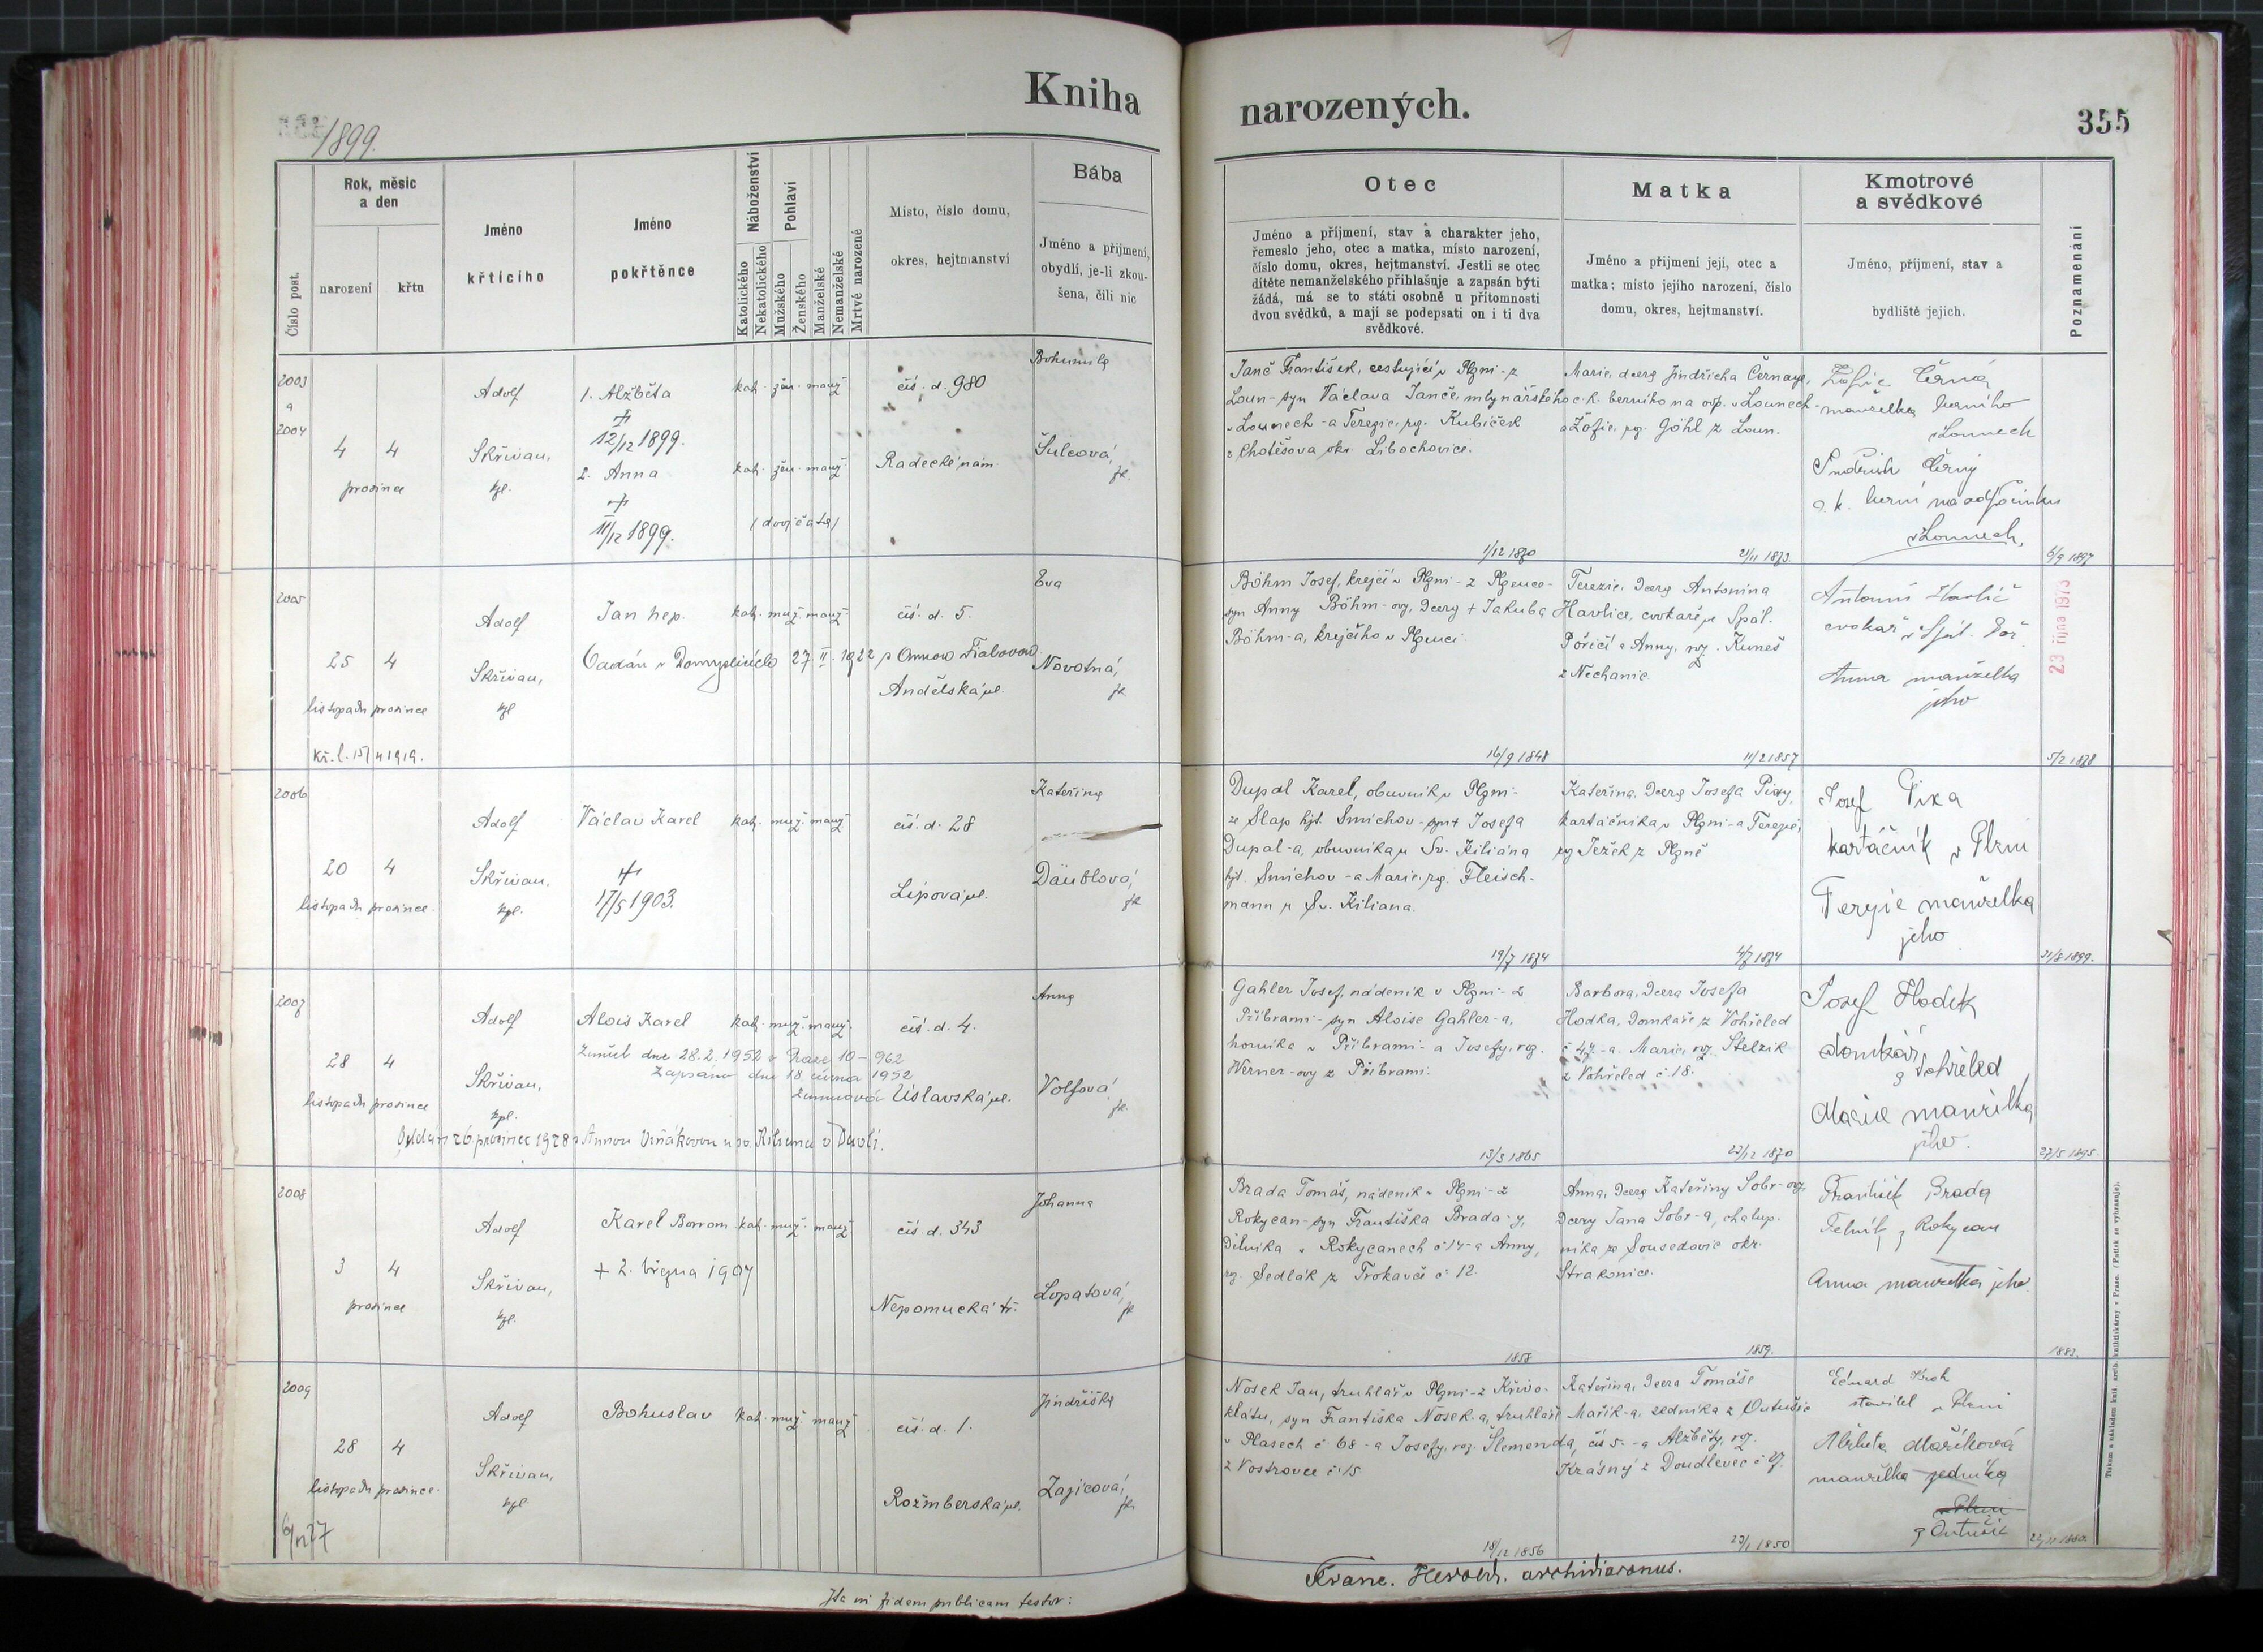 Kniha narozených.
355
1899.
Číslo post.
Rok, měsíc
a den
narození
křtu
Jméno
křtícího
Jméno
pokřtěnce
Náboženství
Katolického
Nekatolického
Pohlaví
Mužského
Ženského
Manželské
Nemanželské
Mrtvě narozené
Místo, číslo domu,
okres, hejtmanství
Bába
Jméno a příjmení,
obydlí, je-li zkou-
šena, čili nic
Otec
Jméno a příjmení, stav a charakter jeho,
řemeslo jeho, otec a matka, místo narození,
číslo domu, okres, hejtmanství. Jestli se otec
dítěte nemanželského přihlašuje a zapsán býti
žádá, má se to státi osobně u přítomnosti
dvou svědků, a mají se podepsati on i ti dva
svědkové.
Matka
Jméno a příjmení její, otec a
matka; místo jejího narození, číslo
domu, okres, hejtmanství.
Kmotrové
a svědkové
Jméno, příjmení, stav a
bydliště jejich.
Poznamenání
2003
a
2004
4 4
prosince
Adolf
Skřivan,
kpl.
1. Alžběta
+
12/12 1899.
2. Anna
+
11/12 1899.
kat. žen. manž.
kat. žen. manž.
/dvojčata/
čís. d. 980
Radecké nám.
Bohumila
Šulcová,
zk.
Janč František, cestující v Plzni - z
Loun - syn Václava Janče, mlynářského
v Lounech - a Terezie, roz. Kubíček
z Chotěšova okr. Libochovice.
1/12 1870
Marie, dcera Jindřicha Černaye,
c. k. berního na odp. v Lounech -
a Žofie, roz. Göhl z Loun.
21/11 1873.
Žofie Černá
manželka berního
v Lounech
Jindřich Černý
c. k. berní na odpočinku
v Lounech.
6/9 1897
2005
25 4
listopadu prosince
kř. l. 15/ 11 1919.
Adolf
Skřivan,
kpl
Jan nep.
Oddán v Domyslicích 27 II. 1922 s Annou Fialovou
kat. muž. manž.
čís. d. 5.
Andělská ul.
Eva
Novotná,
zk
Böhm Josef, krejčí v Plzni - z Plzence -
syn Anny Böhm-ovy, dcery + Jakuba
Böhm-a, krejčího v Plzenci.
16/9 1848
Terezie, dcera Antonína
Havlice, cvokaře ve Spál.
Poříčí a Anny, roz. Kuneš
z Nechanic
11/2 1857
Antonín Havlič
cvokař v Spál. Poř.
Anna manželka
jeho
23 října 1973
5/2 1878
2006
20 4
listopadu prosince.
Adolf
Skřivan.
kpl.
Václav Karel
+
17/5 1903.
kat. muž. manž
čís. d. 28
Lípová ul.
Kateřina
Däublová,
zk
Dupal Karel, obuvník v Plzni -
ze Slap hjt. Smíchov - syn + Josefa
Dupal-a, obuvníka u Sv. Kiliána
hjt. Smíchov - a Marie, rz. Fleisch-
mann u Sv. Kiliana.
19/7 1874
Kateřina, dcera Josefa Pixy,
kartáčníka v Plzni - a Terezie,
rz Ježek z Plzně
4/7 1874
Josef Pixa
kartáčník v Plzni
Terzie manželka
jeho
21/8 1899.
2007
28 4
listopadu prosince
Adolf
Skřivan,
kpl.
Alois Karel
Zemřel dne 28.2.1952 v Praze 10 - 962
Zapsáno dne 18. června 1952
Oddán 26 prosince 1928 s Annou Vrňákovou u sv. Kiliana v Davli.
kat. muž. manž.
čís. d. 4.
Úslavská ul.
Anna
Volfová
zk.
Gahler Josef, nádeník v Plzni - z
Příbrami - syn Aloise Gahler-a,
horníka v Příbrami - a Josefy, roz.
Werner-ovy z Příbrami.
13/3 1865
Barbora, dcera Josefa
Hodka, domkáře z Vohřeled
č 47. - a Marie, roz. Stelzik
z Vohřeled č 18.
22/12 1870
Josef Hodek
domkář
z Vohřeled
Marie manželka
jeho.
27/5 1895.
2008
3 4
prosince
Adolf
Skřivan,
kpl.
Karel Borrom.
+ 2. března 1907
kat. muž. manž
čís d. 343
Nepomucká tř.
Johanna
Lopatová,
zk
Brada Tomáš, nádeník v Plzni - z
Rokycan - syn Františka Brada-y,
dělníka v Rokycanech č 14 - a Anny,
rz. Sedlák z Trokavce č 12.
1858
Anna, dcera Kateřiny Sobr-ovy,
dcery Jana Sobr-a, chalup.
níka ze Sousedovic okr.
Strakonice.
1859.
František Brada
z Rokycan
Anna manželka jeho
1883.
2009
28 4
listopadu prosince.
6/12 27
Adolf
Skřivan,
kpl
Bohuslav
kat. muž. manž
čís. d. 1.
Rožmberská ul.
Jindřiška
Zajícová,
zk
Nosek Jan, truhlář v Plzni - z Křivo-
klátu, syn Františka Nosek-a, truhláře
v Plasech č 68 - a Josefy, roz. Šlemenda
z Vostrovce č 15
18/12 1856
Kateřina, dcera Tomáše
Mařík-a, zedníka z Outušic
čís 5. - a Alžběty, roz.
Krásný z Doudlevec č 7.
23/1 1850
Eduard Kroh
stavitel v Plzni
Alžběta Maříková
manželka zedníka
v Plzni
z Outušic
22/11 1880.
Ita in fidem publicam testor:
Franc. Herold. archidiaconus.
Tiskem a nákladem knih. arcib. knihtiskárny v Praze. (Patisk se vyhrazuje).